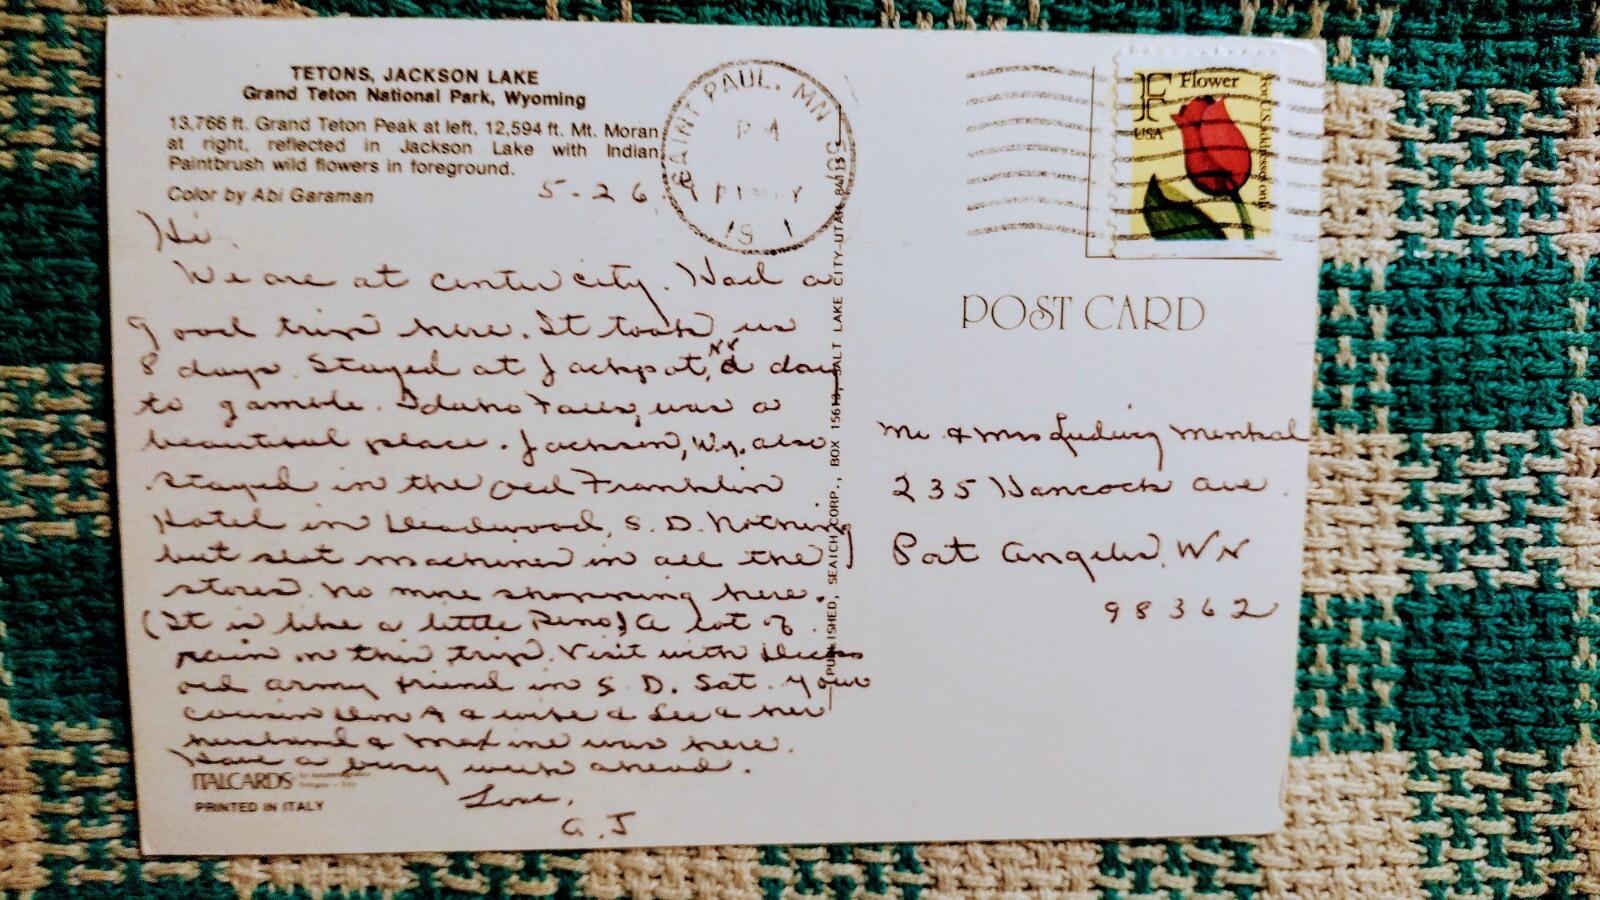 TETONS, JACKSON LAKE
Grand Teton National Park, Wyoming
13,766 ft. Grand Teton Peak at left, 12,594 ft. Mt. Moran
at right, reflected in Jackson Lake with Indian
Paintbrush wild flowers in foreground.
Color by Abi Garaman
5-26
Hi.
We are at Center City. Had a
good trip here. It took us
8 days. Stayed at Jackpot, NV a day
to gamble. Idaho Falls was a
beautiful place. Jackson, Wy. also
stayed in the Old Franklin
Hotel in Deadwood, S. D. Nothing
but slot machines in all the
stores. No more shopping here.
(It is like a little Reno) A lot of
rain on this trip. Visit with
old army friend in S. D. Sat. your
cousin Don A & wife & Lee & her
husband & Maxine was here.
Have a busy week ahead.
Love,
A. J
ITALCARDS
PRINTED IN ITALY
PUBLISHED, SEAICH CORP., BOX 15613, SALT LAKE CITY-UTAH
SAINT PAUL, MN
PM
F Flower
USA
For U.S. addresses only
POST CARD
Mr & Mrs Ludwig
235 Hancock Ave.
Port Angeles, WN
98362